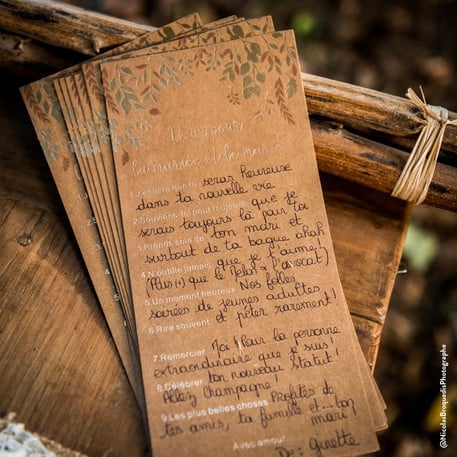 Vœux pour
la mariée et le marié
1.J'espère que tu seras heureuse
dans ta nouvelle vie
2.Souviens-toi pour toujours que je
serais toujours là par toi
3.Prends soin de ton mari et
surtout de ta bague ahah
4.N'oublie jamais que je t'aime!
(Plus(+) que le Pelat à l'avocat)
5.Un moment heureux Nos folles
soirées de jeunes adultes
6.Rire souvent et péter rarement!
7.Remercier Moi! Pour la personne
extraordinaire que je suis!
8.Célébrer ton nouveau statut!
Allez Champagne!
9.Les plus belles choses Profites de
tes amis, ta famille et... ton
mari
Avec amour
De: Ginette
@NicolasBroquedisPhotographe